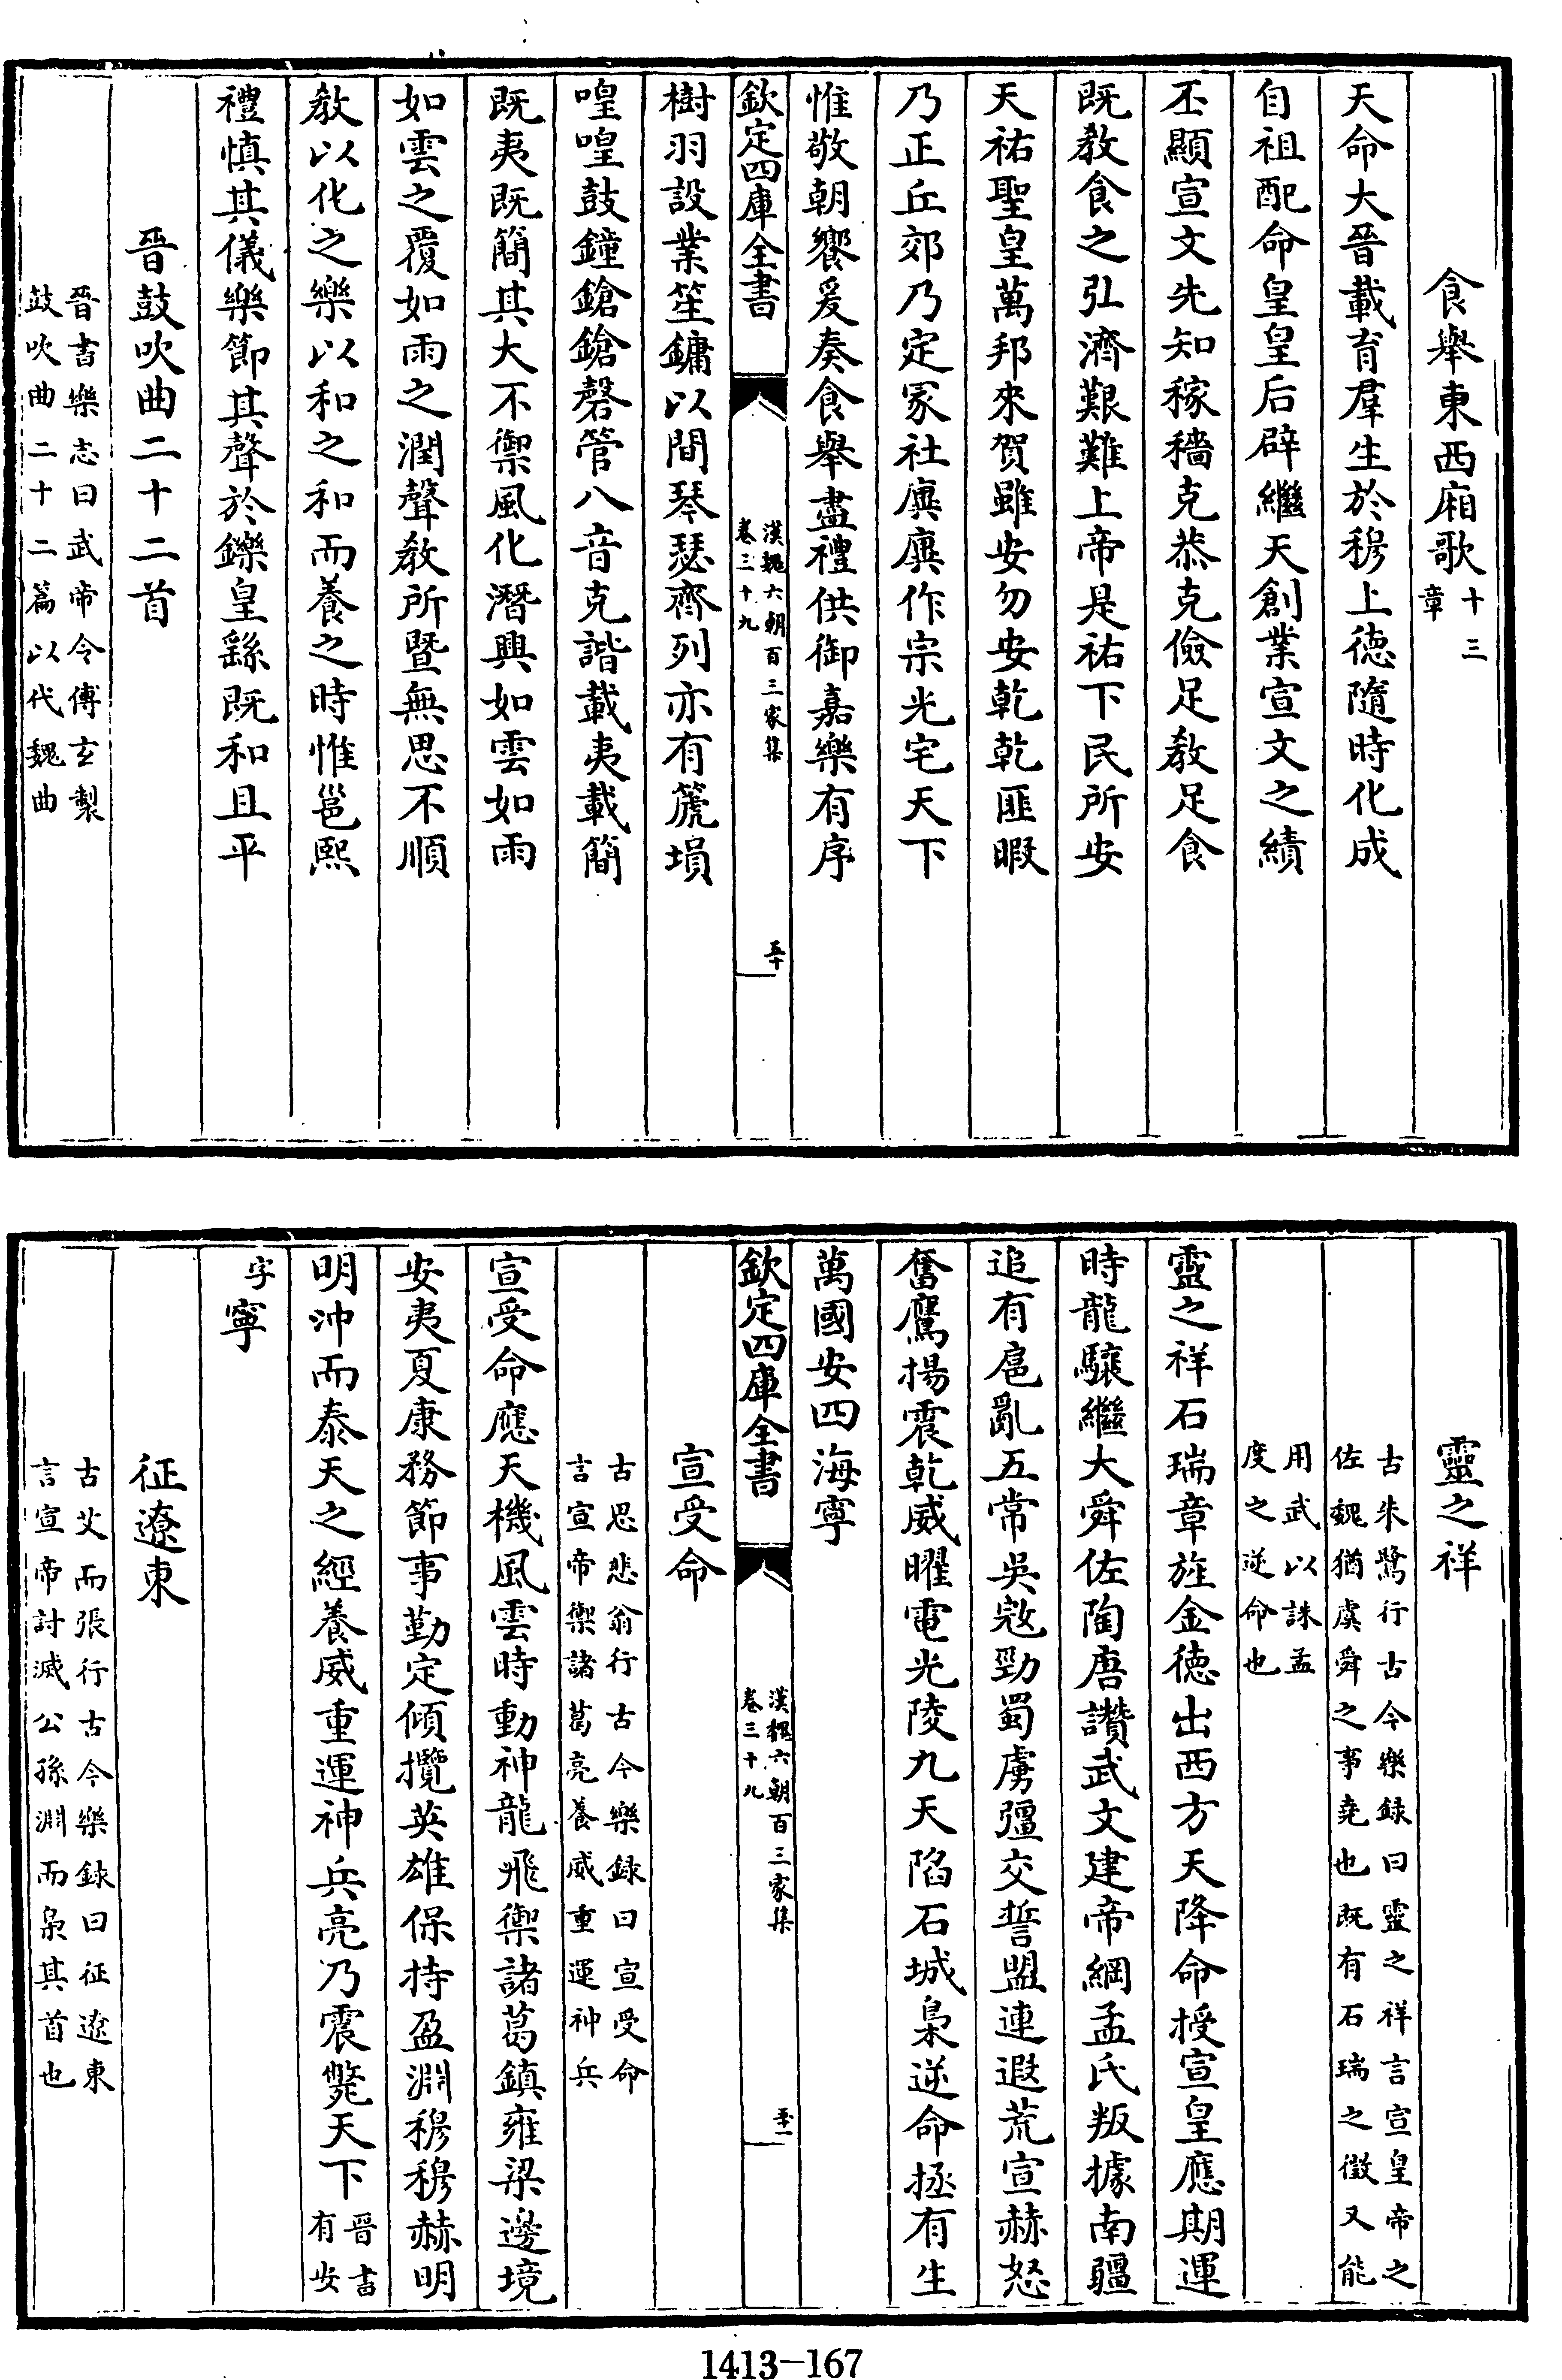 食舉東西廂歌十三章
天命大晉載育羣生於穆上德隨時化成
自祖配命皇皇后辟繼天創業宣文之績
丕顯宣文先知稼穡克恭克儉足敎足食
既敎食之弘濟艱難上帝是祐下民所安
天祐聖皇萬邦來賀雖安勿安乾乾匪暇
乃正丘郊乃定冢社廙廙作宗光宅天下
惟敬朝饗爰奏食舉盡禮供御嘉樂有序
欽定四庫全書
漢魏六朝百三家集
卷三十九
五十
樹羽設業笙鏞以間琴瑟齊列亦有篪塤
喤喤鼓鐘鎗鎗磬管八音克諧載夷載簡
既夷既簡其大不禦風化潛興如雲如雨
如雲之覆如雨之潤聲敎所暨無思不順
敎以化之樂以和之和而養之時惟邕熙
禮慎其儀樂節其聲於鑠皇繇既和且平
晉鼓吹曲二十二首
晉書樂志曰武帝令傅玄製
鼓吹曲二十二篇以代魏曲
靈之祥
古朱鷺行古今樂録曰靈之祥言宣皇帝之
佐魏猶虞舜之事堯也既有石瑞之徵又能
用武以誅孟
度之逆命也
靈之祥石瑞章旌金德出西方天降命授宣皇應期運
時龍驤繼大舜佐陶唐讚武文建帝綱孟氏叛據南疆
追有扈亂五常吳寇勁蜀虜彊交誓盟連遐荒宣赫怒
奮鷹揚震乾威曜電光陵九天陷石城梟逆命拯有生
萬國安四海寧
欽定四庫全書
漢魏六朝百三家集
卷三十九
五十一
宣受命
古思悲翁行古今樂録曰宣受命
言宣帝禦諸葛亮養威重運神兵
宣受命應天機風雲時動神龍飛禦諸葛鎮雍梁邊境
安夷夏康務節事勤定傾攬英雄保持盈淵穆穆赫明
明沖而泰天之經養威重運神兵亮乃震斃天下晉書有安
字寧
征遼東
古艾而張行古今樂録曰征遼東
言宣帝討滅公孫淵而梟其首也
1413—167